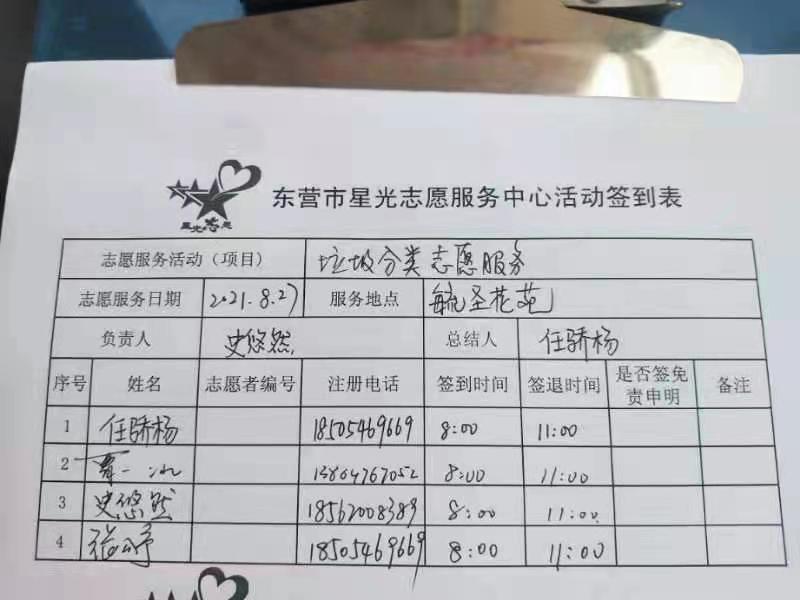 星光志愿
东营市星光志愿服务中心活动签到表
志愿服务活动（项目） 垃圾分类志愿服务
志愿服务日期 2021.8.27 服务地点 毓圣花苑
负责人 史悠然 总结人 任骄杨
序号 姓名 志愿者编号 注册电话 签到时间 签退时间 是否签免责申明 备注
1 任骄杨 18505469669 8:00 11:00
2 13864767052 8:00 11:00
3 史悠然 18562008389 8:00 11:00
4 张 18505469669 8:00 11:00